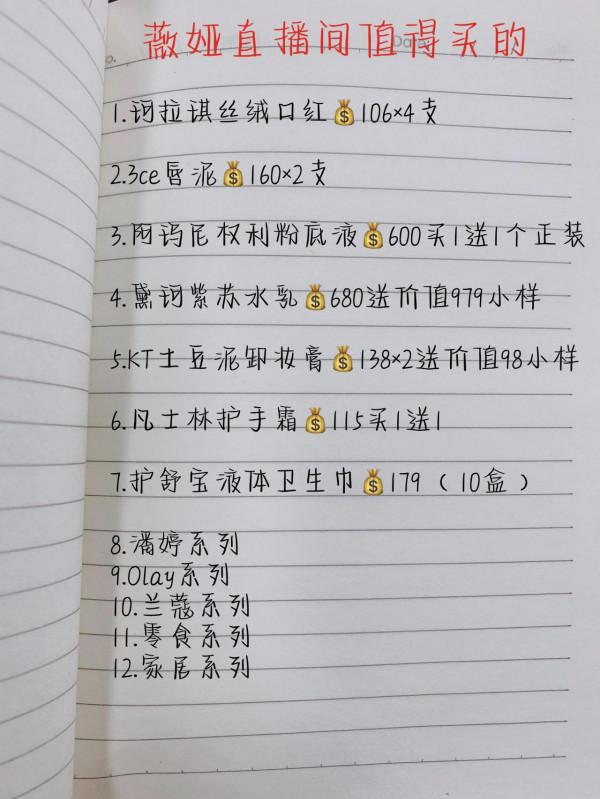 薇娅直播间值得买的
1.珂拉琪丝绒口红💰106×4支
2.3ce唇泥💰160×2支
3.阿玛尼权利粉底液💰600买1送1个正装
4.黛珂紫苏水乳💰680送价值979小样
5.KT土豆泥卸妆膏💰138×2送价值98小样
6.凡士林护手霜💰115买1送1
7.护舒宝液体卫生巾💰179（10盒）
8.潘婷系列
9.Olay系列
10.兰蔻系列
11.零食系列
12.家居系列